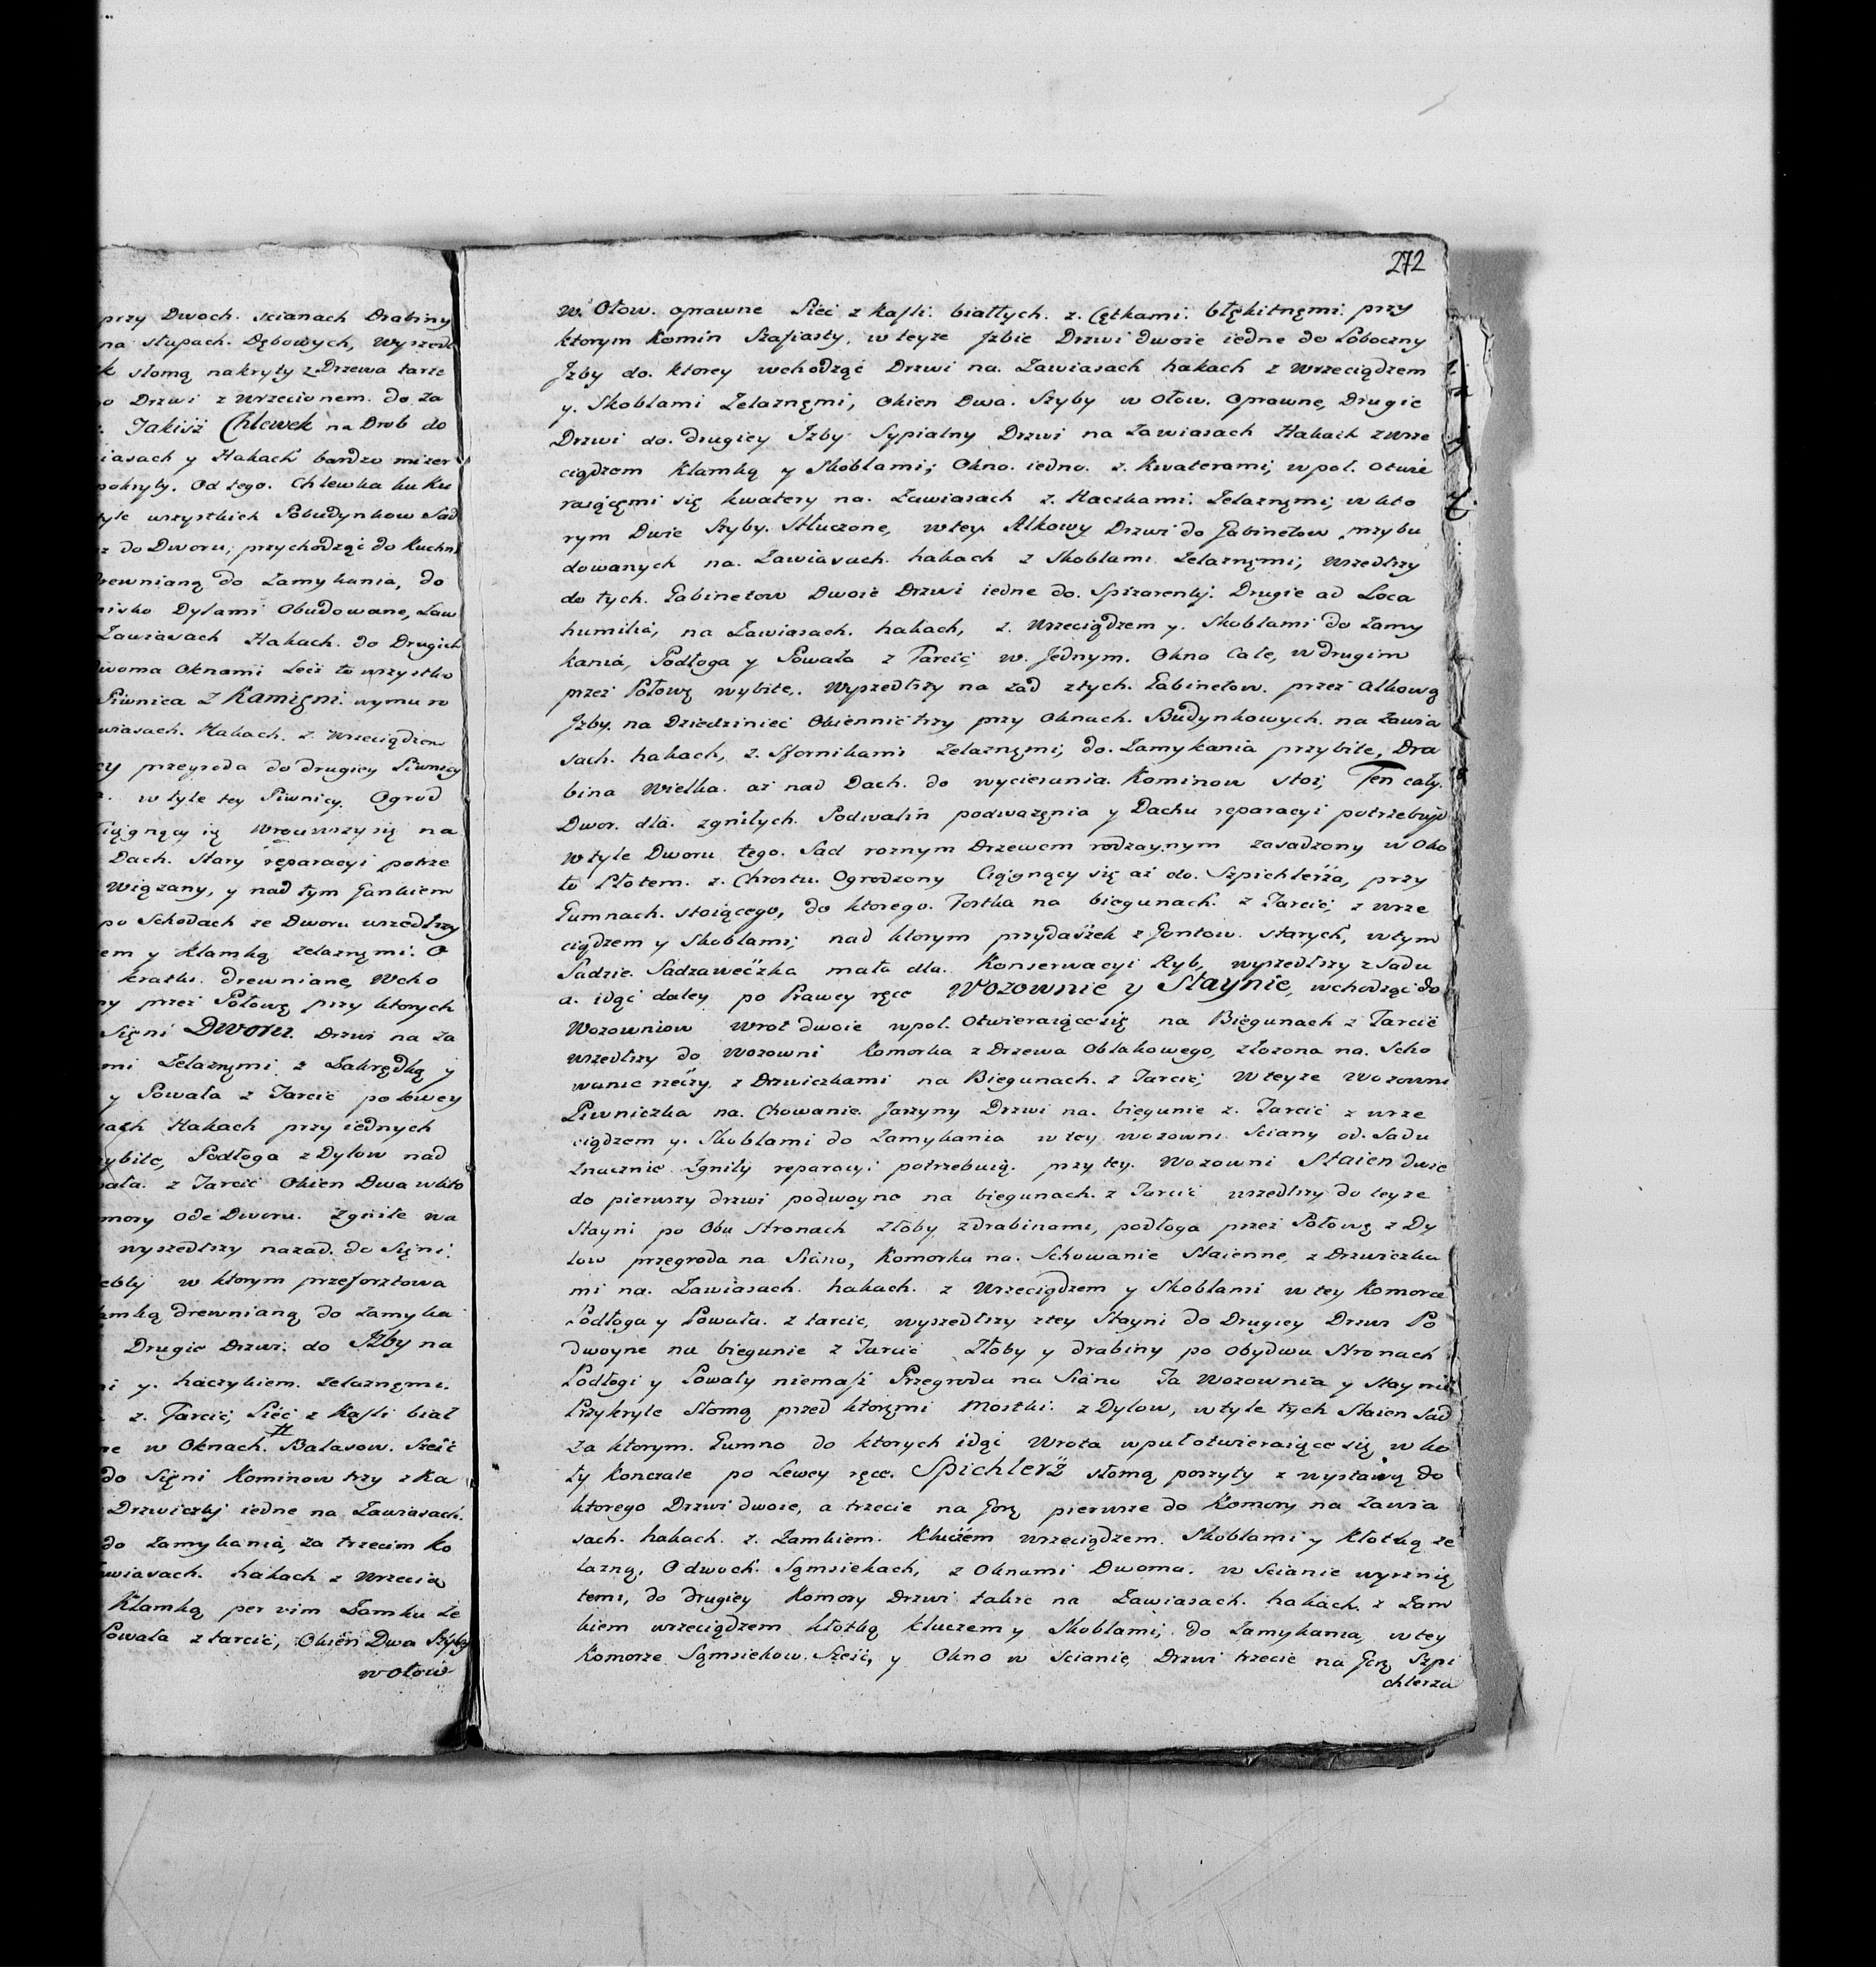 przy Dwoch. scianach Drabiny
na słupach. Dębowych, wyszedł
k słomą nakryty z Drzewa tarte
o Drzwi z wrzecionem. do za
Jakisż Chlewek na Drob do
iasach y Hakach bardzo mizer
pokryty. Od tego. Chlewka ku Ku
tyle wszystkich Pobudynkow Sad
z do Dworu, przychodząć do Kuchni
rewnianą do Zamykania, do
nisko Dylami Obudowane, Law
Zawiasach Hakach. do Drugich
woma Oknami Lecż to wszystko
Piwnica z Kamięni. wymuro
wiasach. Hakach. z. Wrzeciądzem
cy przegroda do drugiey Piwnicy
w tyle tey Piwnicy. Ogrod
Ciągnący ią wrociwszy się na
Dach. stary reparacyi potrze
wiązany, y nad tym Gankiem
po Schodach ze Dworu wszedłszy
em y Klamką żelaznęmi. O
kratki. drewniane, Wcho
y przez Połowę przy ktorych
Sięni Dworu. Drzwi na za
mi Zelaznęmi z Zakrędką y
y Powała z Tarcic po lewey
ach Hakach przy iednych
ybite, Podłoga z Dylow nad
ała. z Tarcić Okien Dwa w kto
mory ode Dworu. zgniłe wa
wyszedłszy nazad. do Sięni.
ebly w ktorym przeforsztowa
amką drewnianą do zamyka
Drugie Drzwi. do Jżby na
i y. haczykiem. zelaznęmi.
z. Tarcić, Pieć z Kafli biał
ne w Oknach. Balasow. Sześć
do Sięni Kominow trzy z Ka
Drzwiczki iedne na Zawiasach.
do zamykania, za trzecim ko
wiasach. hakach z Wrzecią
Klamką per vim Zamku że
Powała z tarcić, Okien Dwa Szyby
w ołow
272
w. Ołow. oprawne Pieć z Kafli. białtych. z. Cętkami. błękitnęmi. przy
ktorym Komin Szafiasty, w teyze Jzbie Drzwi dwoie iedne do Poboczny
Jzby do. ktorey wchodząć Drzwi na. Zawiasach hakach z wrzeciądzem
y. Skoblami Zelaznęmi, Okien Dwa. Szyby w ołow. Oprawne, Drugie
Drzwi do. drugiey Jzby Sypialny Drzwi na Zawiasach Hakach z wrze
ciądzem klamką y Skoblami; Okno. iedno. z. Kwaterami, w poł. otwie
raiącęmi się kwatery na. Zawiasach z. Haczkami. Zelaznęmi, w kto
rym Dwie Szyby. Stłuczone, w tey Alkowy Drzwi do Gabinetow przybu
dowanych na. Zawiasach. hakach z Skoblami Zelaznęmi; wszedłszy
do tych. Gabinetow Dwoie Drzwi iedne do. Spizarenky. Drugie ad Loca
humilia, na Zawiasach. hakach, z. Wrzeciądzem y. Skoblami do Zamy
kania, Podłoga y Powała z Tarcić w. Jednym. Okno Całe, w drugim
przez Połowę wybite,. Wyszedłszy na zad z tych. Gabinetow. przez alkowę
Jzby. na Dziedziniec Okiennic trzy przy oknach. Budynkowych. na zawia
sach. hakach, z. Sfornikami Zelaznęmi, do. Zamykania przybite, Dra
bina Wielka. aż nad Dach. do wycierania. Kominow stoi, Ten cały.
Dwor. dla. zgniłych. Podwalin podważęnia y Dachu reparacyi potrzebuje
w tyle Dworu tego. Sad roznym Drzewem rodzaynym zasadzony w oko
ło Płotem. z. Chrostu. Ogrodzony Ciągnący się aż do. Szpichlerża, przy
Gumnach. stoiącego, do ktorego. Fortka na biegunach. z Tarcic, z wrze
ciądzem y Skoblami; nad ktorym przydaszek z Gontow. starych, w tym
Sadzie Sadzawećzka mała dla. Konserwacyi Ryb, wyszedłszy z Sadu
a. idąć daley po Prawey ręce Wozownie y Staynie, wchodząć do
Wozowniow wrot dwoie w poł. otwieraiące się na Biegunach z Tarcić
wszedłszy do Wozowni Komorka z Drzewa Oblakowego, złozona na. Scho
wanie rzećzy, z Drzwiczkami na Biegunach. z Tarcic, W teyze Wozowni
Piwniczka na. Chowanie. Jarzyny Drzwi na. biegunie z. Tarcic z wrze
ciądzem y. Skoblami do Zamykania w tey wozowni Sciany od. Sadu
znacznie Zgniły reparacyi potrzebuią. przy tey. Wozowni Staien dwie
do pierwszy drzwi podwoyne na biegunach. z Tarcic wszedłszy do teyze
Stayni po Obu stronach Złoby z drabinami, podłoga przez Połowę z Dy
low przegroda na Siano, Komorka na. Schowanie Staienne, z Drzwiczka
mi na. Zawiasach. hakach. z Wrzeciądzem y Skoblami w tey Komorce
Podłoga y Powała. z tarcic, wyszedłszy z tey Stayni do Drugiey Drzwi Po
dwoyne na biegunie z Tarcic Złoby y drabiny po obydwu Stronach
Podłogi y Powały niemasz Przegroda na Siano Ta Wozownia y Staynie
Przykryte Słomą przed ktoręmi Mostki. z Dylow, w tyle tych Staien Sad
za ktorym. Gumno do ktorych idąć Wrota w puł otwieraiące się, w ko
ły Konczate po Lewey ręce. Spichlerż słomą poszyty z wystawą do
ktorego Drzwi dwoie, a trzecie na Gorę pierwsze do Komory na zawia
sach. hakach. z. Zamkiem. kluczem wrzeciądzem. Skoblami y kłotką że
lazną, O dwoch. Sąmsiekach, z Oknami Dwoma. w Scianie wyrznię
temi, do drugiey Komory Drzwi także na Zawiasach. hakach. z Zam
kiem wrzeciądzem kłotką kluczem y Skoblami, do Zamykania, w tey
Komorze Sąmsiekow. Sześć, y Okno w Scianie, Drzwi trzecie na Gorę Szpi
chlerza